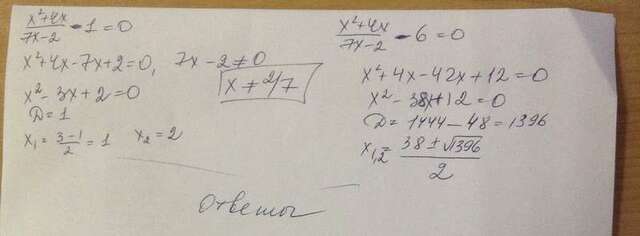 x²+4x / 7x-2 - 1 = 0
x²+4x-7x+2=0, 7x-2≠0
x²-3x+2=0
x ≠ 2/7
D=1
x₁ = 3-1 / 2 = 1 x₂ = 2
x²+4x / 7x-2 - 6 = 0
x²+4x-42x+12=0
x²-38x+12=0
D= 1444-48=1396
x₁,₂= 38 ± √1396 / 2
Ответы